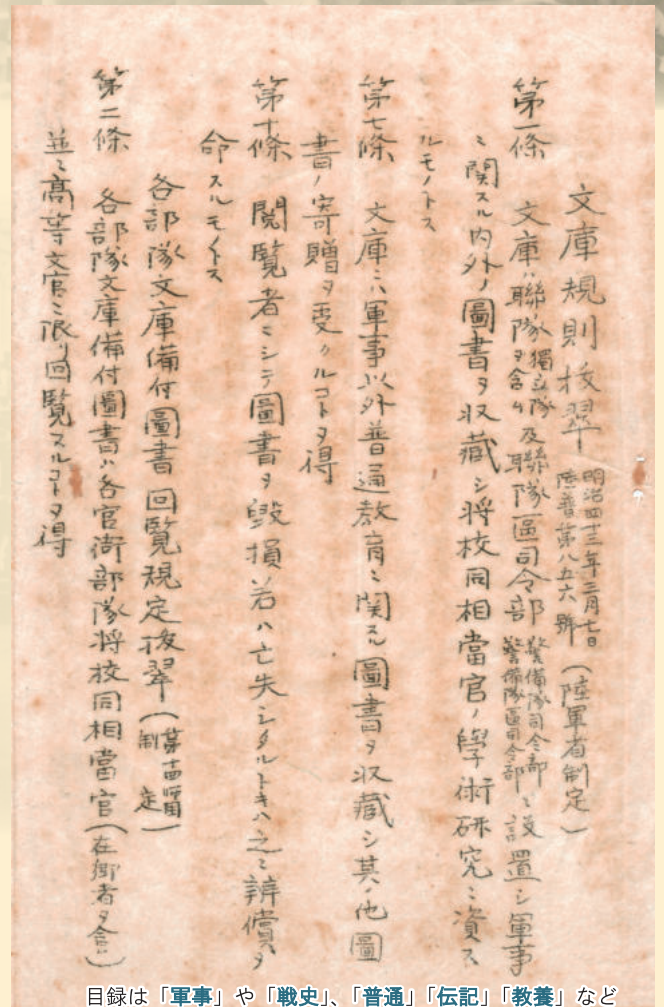 文庫規則抜翠 明治四十三年三月七日 陸普第八五六號 (陸軍省制定)
第一條 文庫ハ聯隊獨立隊ヲ含ム及聯隊區司令部警備隊司令部警備隊區司令部ニ設置シ軍事
ニ関スル内外ノ圖書ヲ収蔵シ将校同相當官ノ學術研究ニ資ス
ルモノトス
第七條 文庫ニハ軍事以外普通教育ニ関スル圖書ヲ収蔵シ其ノ他圖
書ノ寄贈ヲ受クルコトヲ得
第十條 閲覧者ニシテ圖書ヲ毀損若ハ亡失シタルトキハ之ニ辨償ヲ
命スルモノトス
各部隊文庫備付圖書回覧規定抜翠(制定)
第二條 各部隊文庫備付圖書ハ各官衙部隊将校同相當官(在郷者ヲ含ム)
並ニ高等文官ニ限リ回覧スルコトヲ得
目録は「軍事」や「戦史」、「普通」「伝記」「教養」など